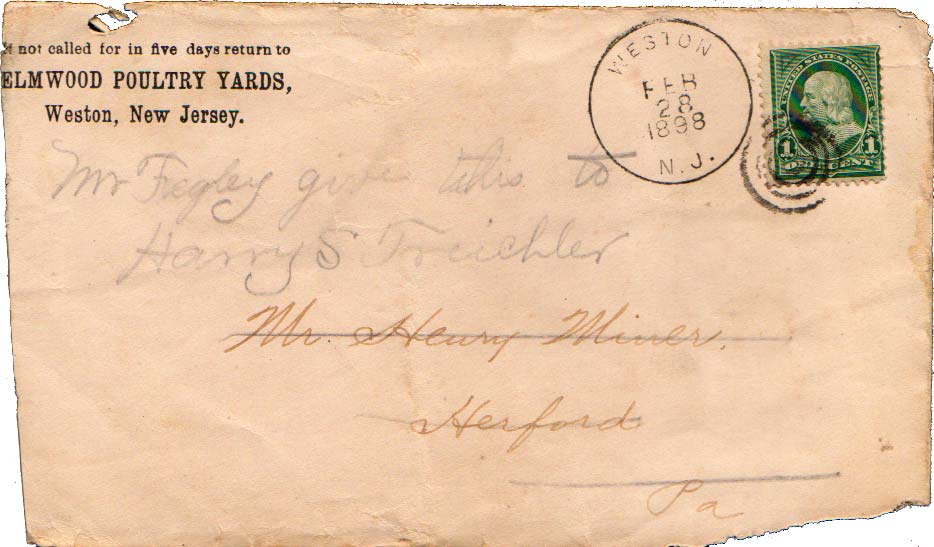 f not called for in five days return to
ELMWOOD POULTRY YARDS,
Weston, New Jersey.
WESTON
FEB
28
1898
N. J.
UNITED STATES POSTAGE
1 1
ONE CENT
Mr Fegley give this to
Harry S Treichler
Mr. Henry Miner.
Herford
Pa